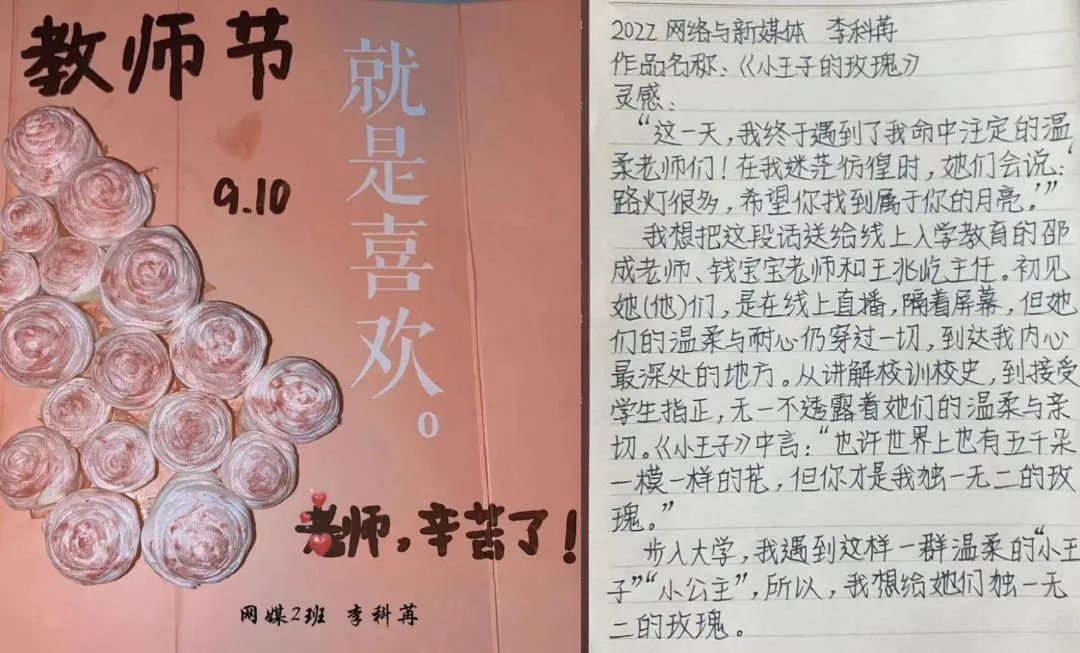 教师节
9.10
就是喜欢。
老师，辛苦了！
网媒2班 李科苒
2022网络与新媒体 李科苒
作品名称：《小王子的玫瑰》
灵感：
“这一天，我终于遇到了我命中注定的温
柔老师们！在我迷茫彷徨时，她们会说：‘
路灯很多，希望你找到属于你的月亮。’”
我想把这段话送给线上入学教育的邵
成老师、钱宝宝老师和王兆屹主任。初见
她(他)们，是在线上直播，隔着屏幕，但她
们的温柔与耐心仍穿过一切，到达我内心
最深处的地方。从讲解校训校史，到接受
学生指正，无一不透露着她们的温柔与亲
切。《小王子》中言：“也许世界上也有五千朵
一模一样的花，但你才是我独一无二的玫
瑰。”
步入大学，我遇到这样一群温柔的“小王
子”“小公主”，所以，我想给她们独一无
二的玫瑰。